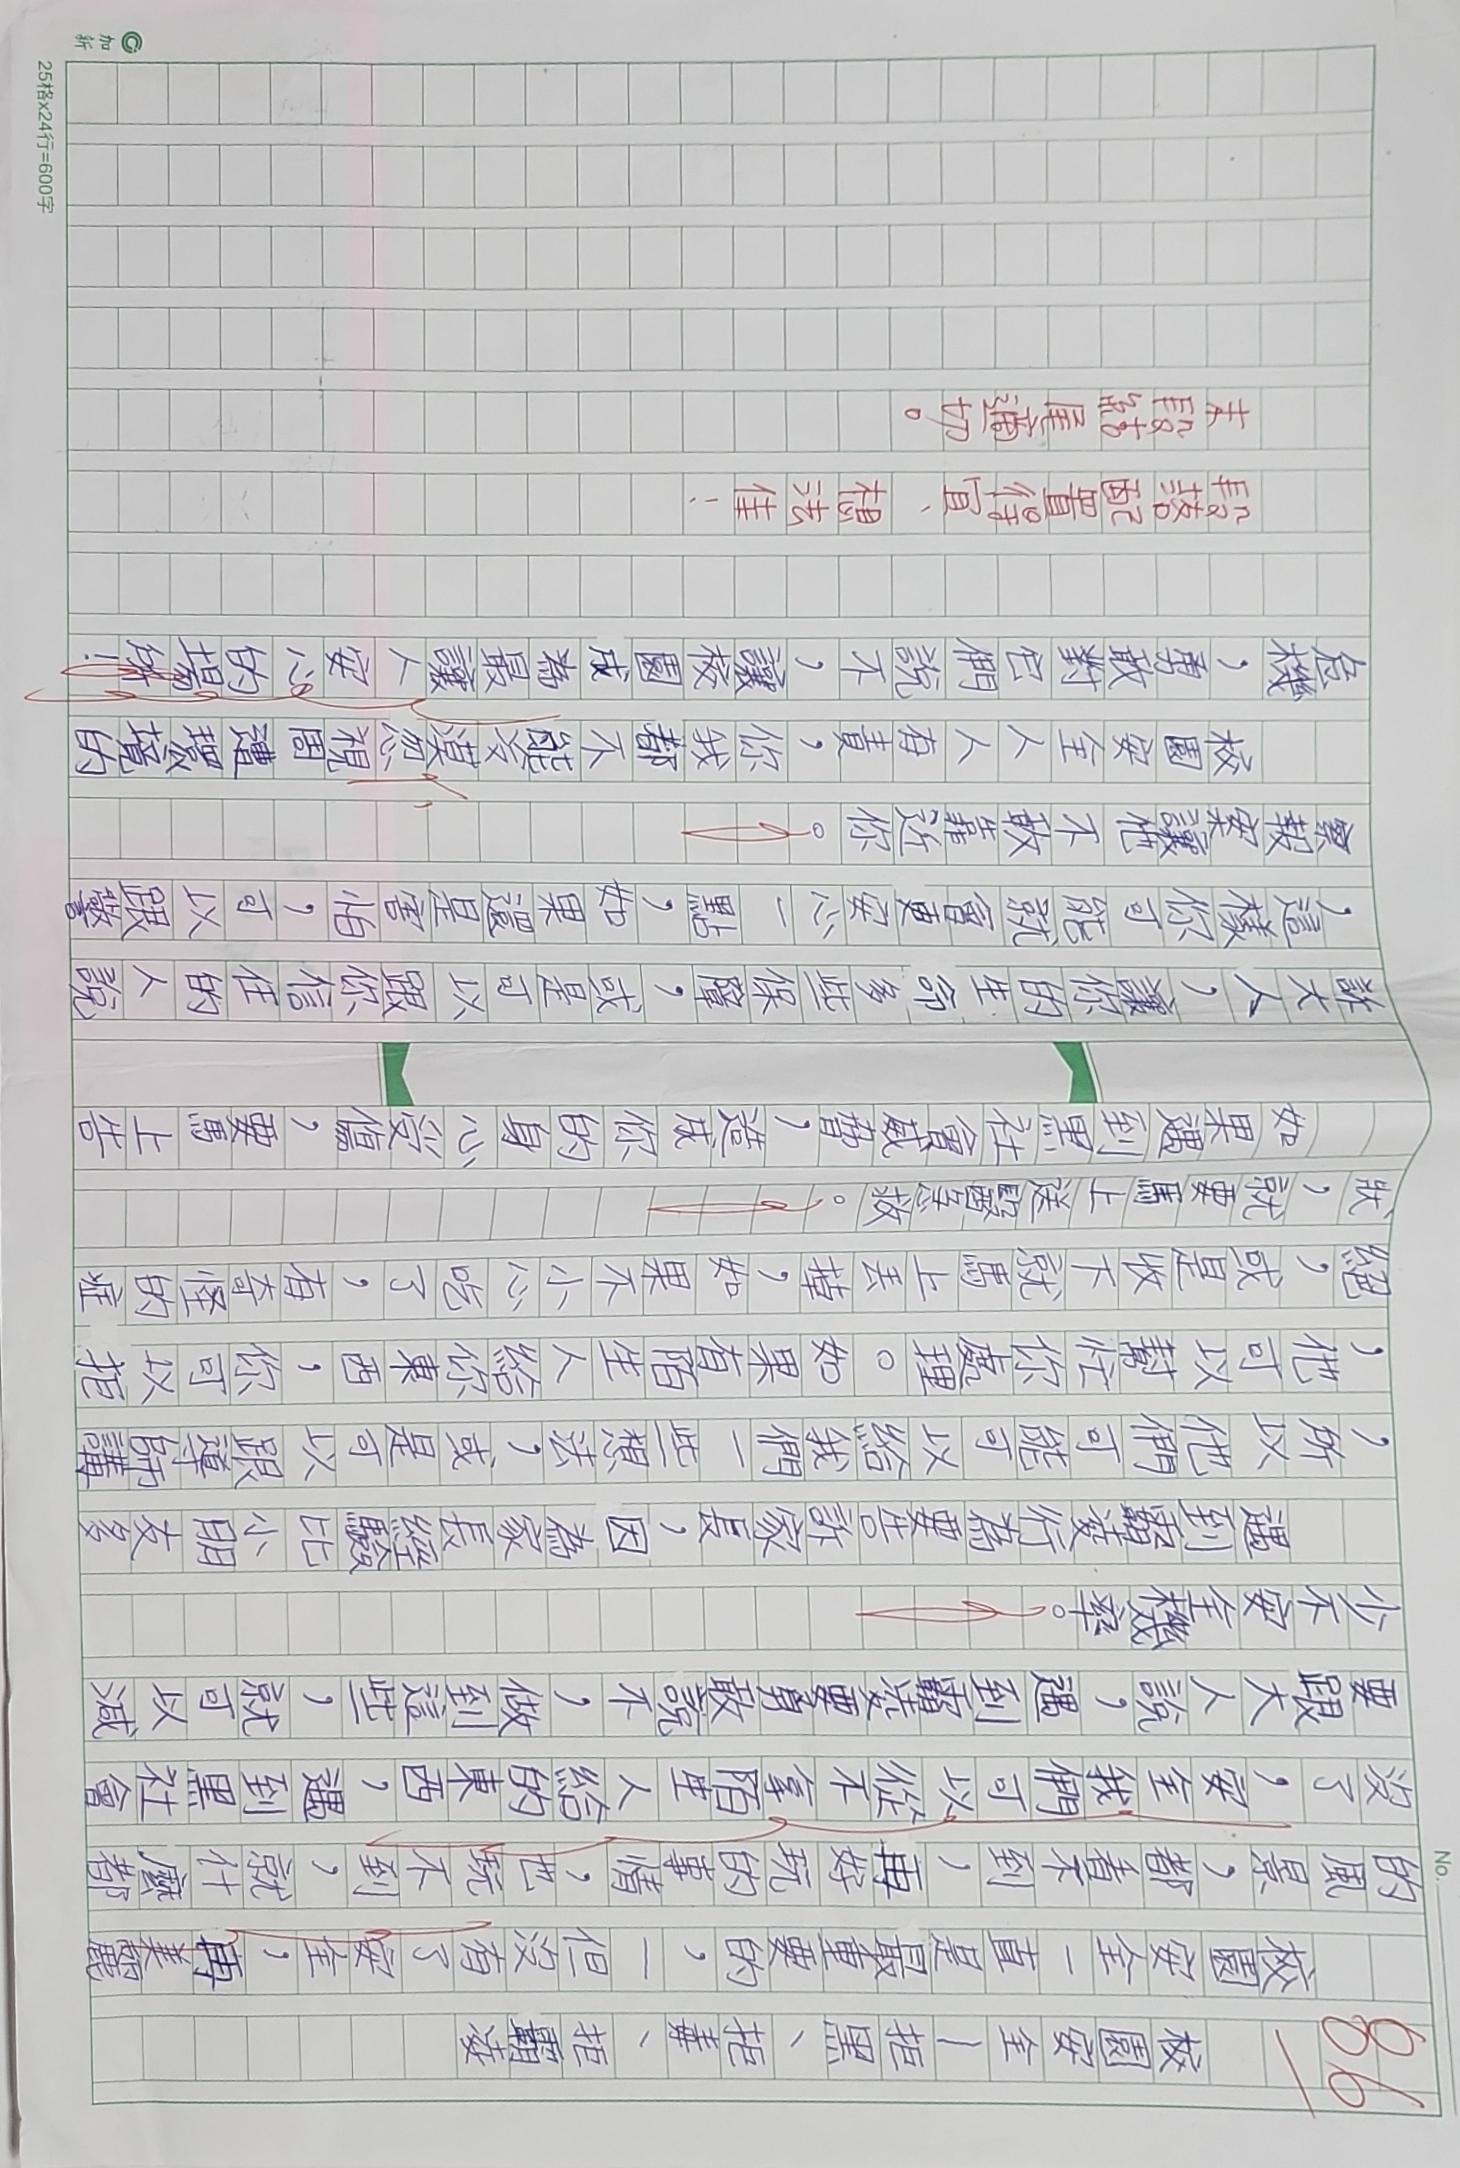 No.
86
校園安全—拒黑、拒毒、拒霸凌
校園安全一直是最重要的,一但沒有了安全,再美麗
的風景,都看不到,再好玩的事情,也玩不到,就什麼都
沒了,安全我們可以從不拿陌生人給的東西,遇到黑社會
要跟大人說,遇到霸凌要勇敢說不,做到這些,就可以減
少不安全機率。
遇到霸凌行為要告訴家長,因為家長經驗比小朋友多
,所以他們可能可以給我們一些想法,或是可以跟導師講
,他可以幫忙你處理。如果有陌生人給你東西,你可以拒
絕,或是收下就馬上丟掉,如果不小心吃了,有奇怪的症
狀,就要馬上送醫急救。
如果遇到黑社會威脅,造成你的身心受傷,要馬上告
訴大人,讓你的生命多些保障,或是可以跟你信任的人說
,這樣你可能就會更安心一點,如果還是害怕,可以跟警
察報案讓他不敢靠近你。
校園安全人人有責,你我都不能漠忽視周遭環境的
危機,勇敢對它們說不,讓校園成為最讓人安心的場所!
段落配置得宜、想法佳!
末段結尾適切。
加新
25格x24行=600字